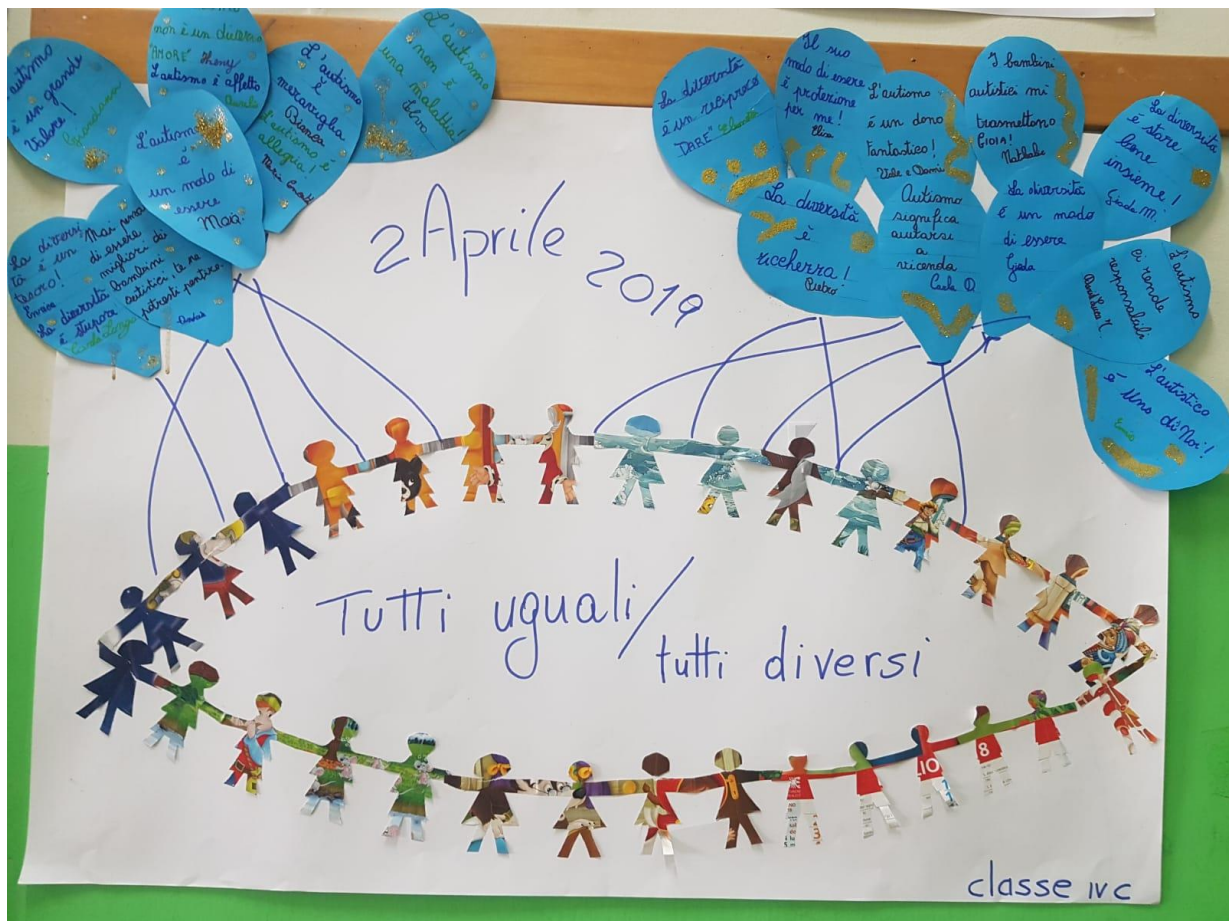 2 Aprile 2019
autismo
è un grande
valore!
non è un
"AMORE"
L'autismo è affetto
L'autismo
è
meraviglia
Bianca
L'autismo è
allegria!
L'autismo
non è
una
malattia!
L'autismo
è
un modo di
essere
Maia
La diversi
tà è un
tesoro!
Enrica
La diversità
è stupore
Mai pensa
di essere
migliori di
bambini
autistici te ne
potresti pentire
Davide
La diversità
è un reciproco
DARE"
Il suo
modo di essere
è protezione
per me!
Elisa
L'autismo
é un dono
Fantastico!
I bambini
autistici mi
trasmettono
GIOIA!
La diversità
è stare
bene
insieme!
Giada M.
La diversità
è
ricchezza!
Pietro
Autismo
significa
aiutarsi
a
vicenda
Carla D.
La diversità
è un modo
di essere
Giada
L'autismo
ci rende
responsabili
L'autistico
è uno di Noi!
Tutti uguali/
tutti diversi
10
8
classe IV C